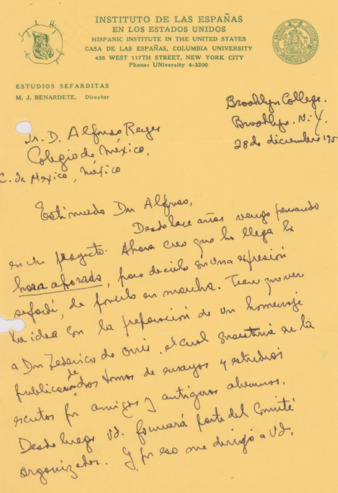 INSTITUTO DE LAS ESPAÑAS
EN LOS ESTADOS UNIDOS
HISPANIC INSTITUTE IN THE UNITED STATES
CASA DE LAS ESPAÑAS, COLUMBIA UNIVERSITY
435 WEST 117TH STREET, NEW YORK CITY
Phone: UNiversity 4-3200
ESTUDIOS SEFARDITAS
M. J. BENARDETE, Director
Brooklyn College.
Brooklyn. N. Y.
28 de diciembre 195
D. Alfonso Reyes
Colegio de Mexico.
C. de Mexico, Mexico
Estimado Don Alfonso,
Desde hace años vengo pensando
en un proyecto. Ahora creo que ha llegado la
hora aporada, para decirlo en una expresión
sefardí, de ponerlo en marcha. Tiene que ver
la idea con la preparación de un homenaje
a Don Federico de Onís, el cual consistiría en la
publicación de dos tomos de ensayos y estudios
escritos por amigos y antiguos alumnos.
Desde luego Vd. formará parte del Comité
organizador. Y por eso me dirijo a Vd.